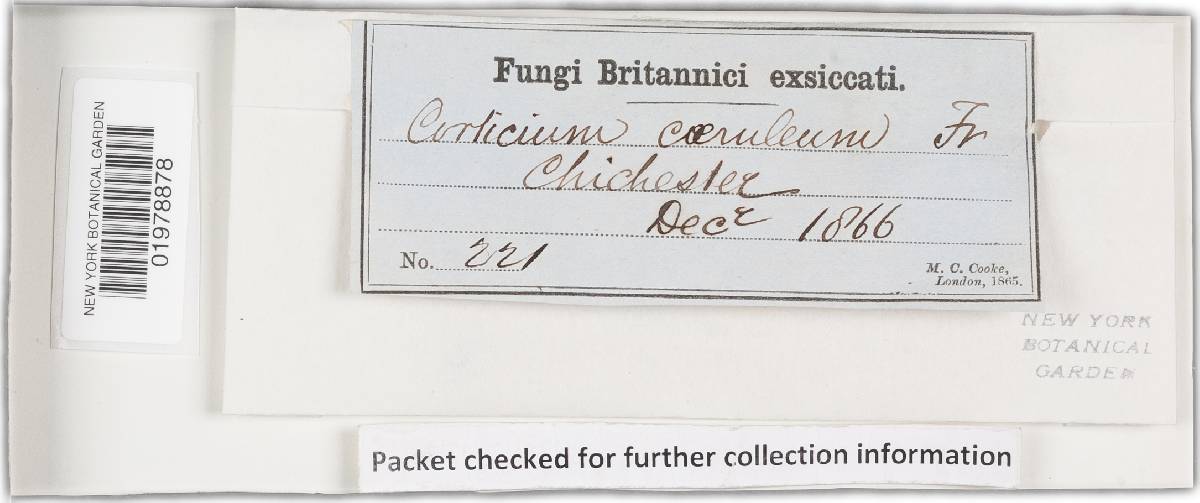 Fungi Britannici exsiccati.
Corticium cæruleum Fr
Chichester
Decr 1866
No. 221
M. C. Cooke,
London, 1865.
NEW YORK BOTANICAL GARDEN
01978878
NEW YORK
BOTANICAL
GARDEN
Packet checked for further collection information